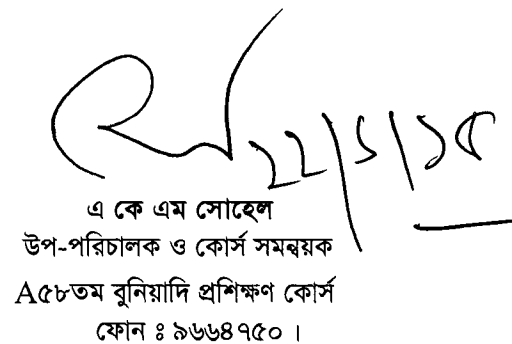 ২২/১/১৫
এ কে এম সোহেল
উপ-পরিচালক ও কোর্স সমন্বয়ক
A৫৮তম বুনিয়াদি প্রশিক্ষণ কোর্স
ফোন ঃ ৯৬৬৪৭৫০ ।